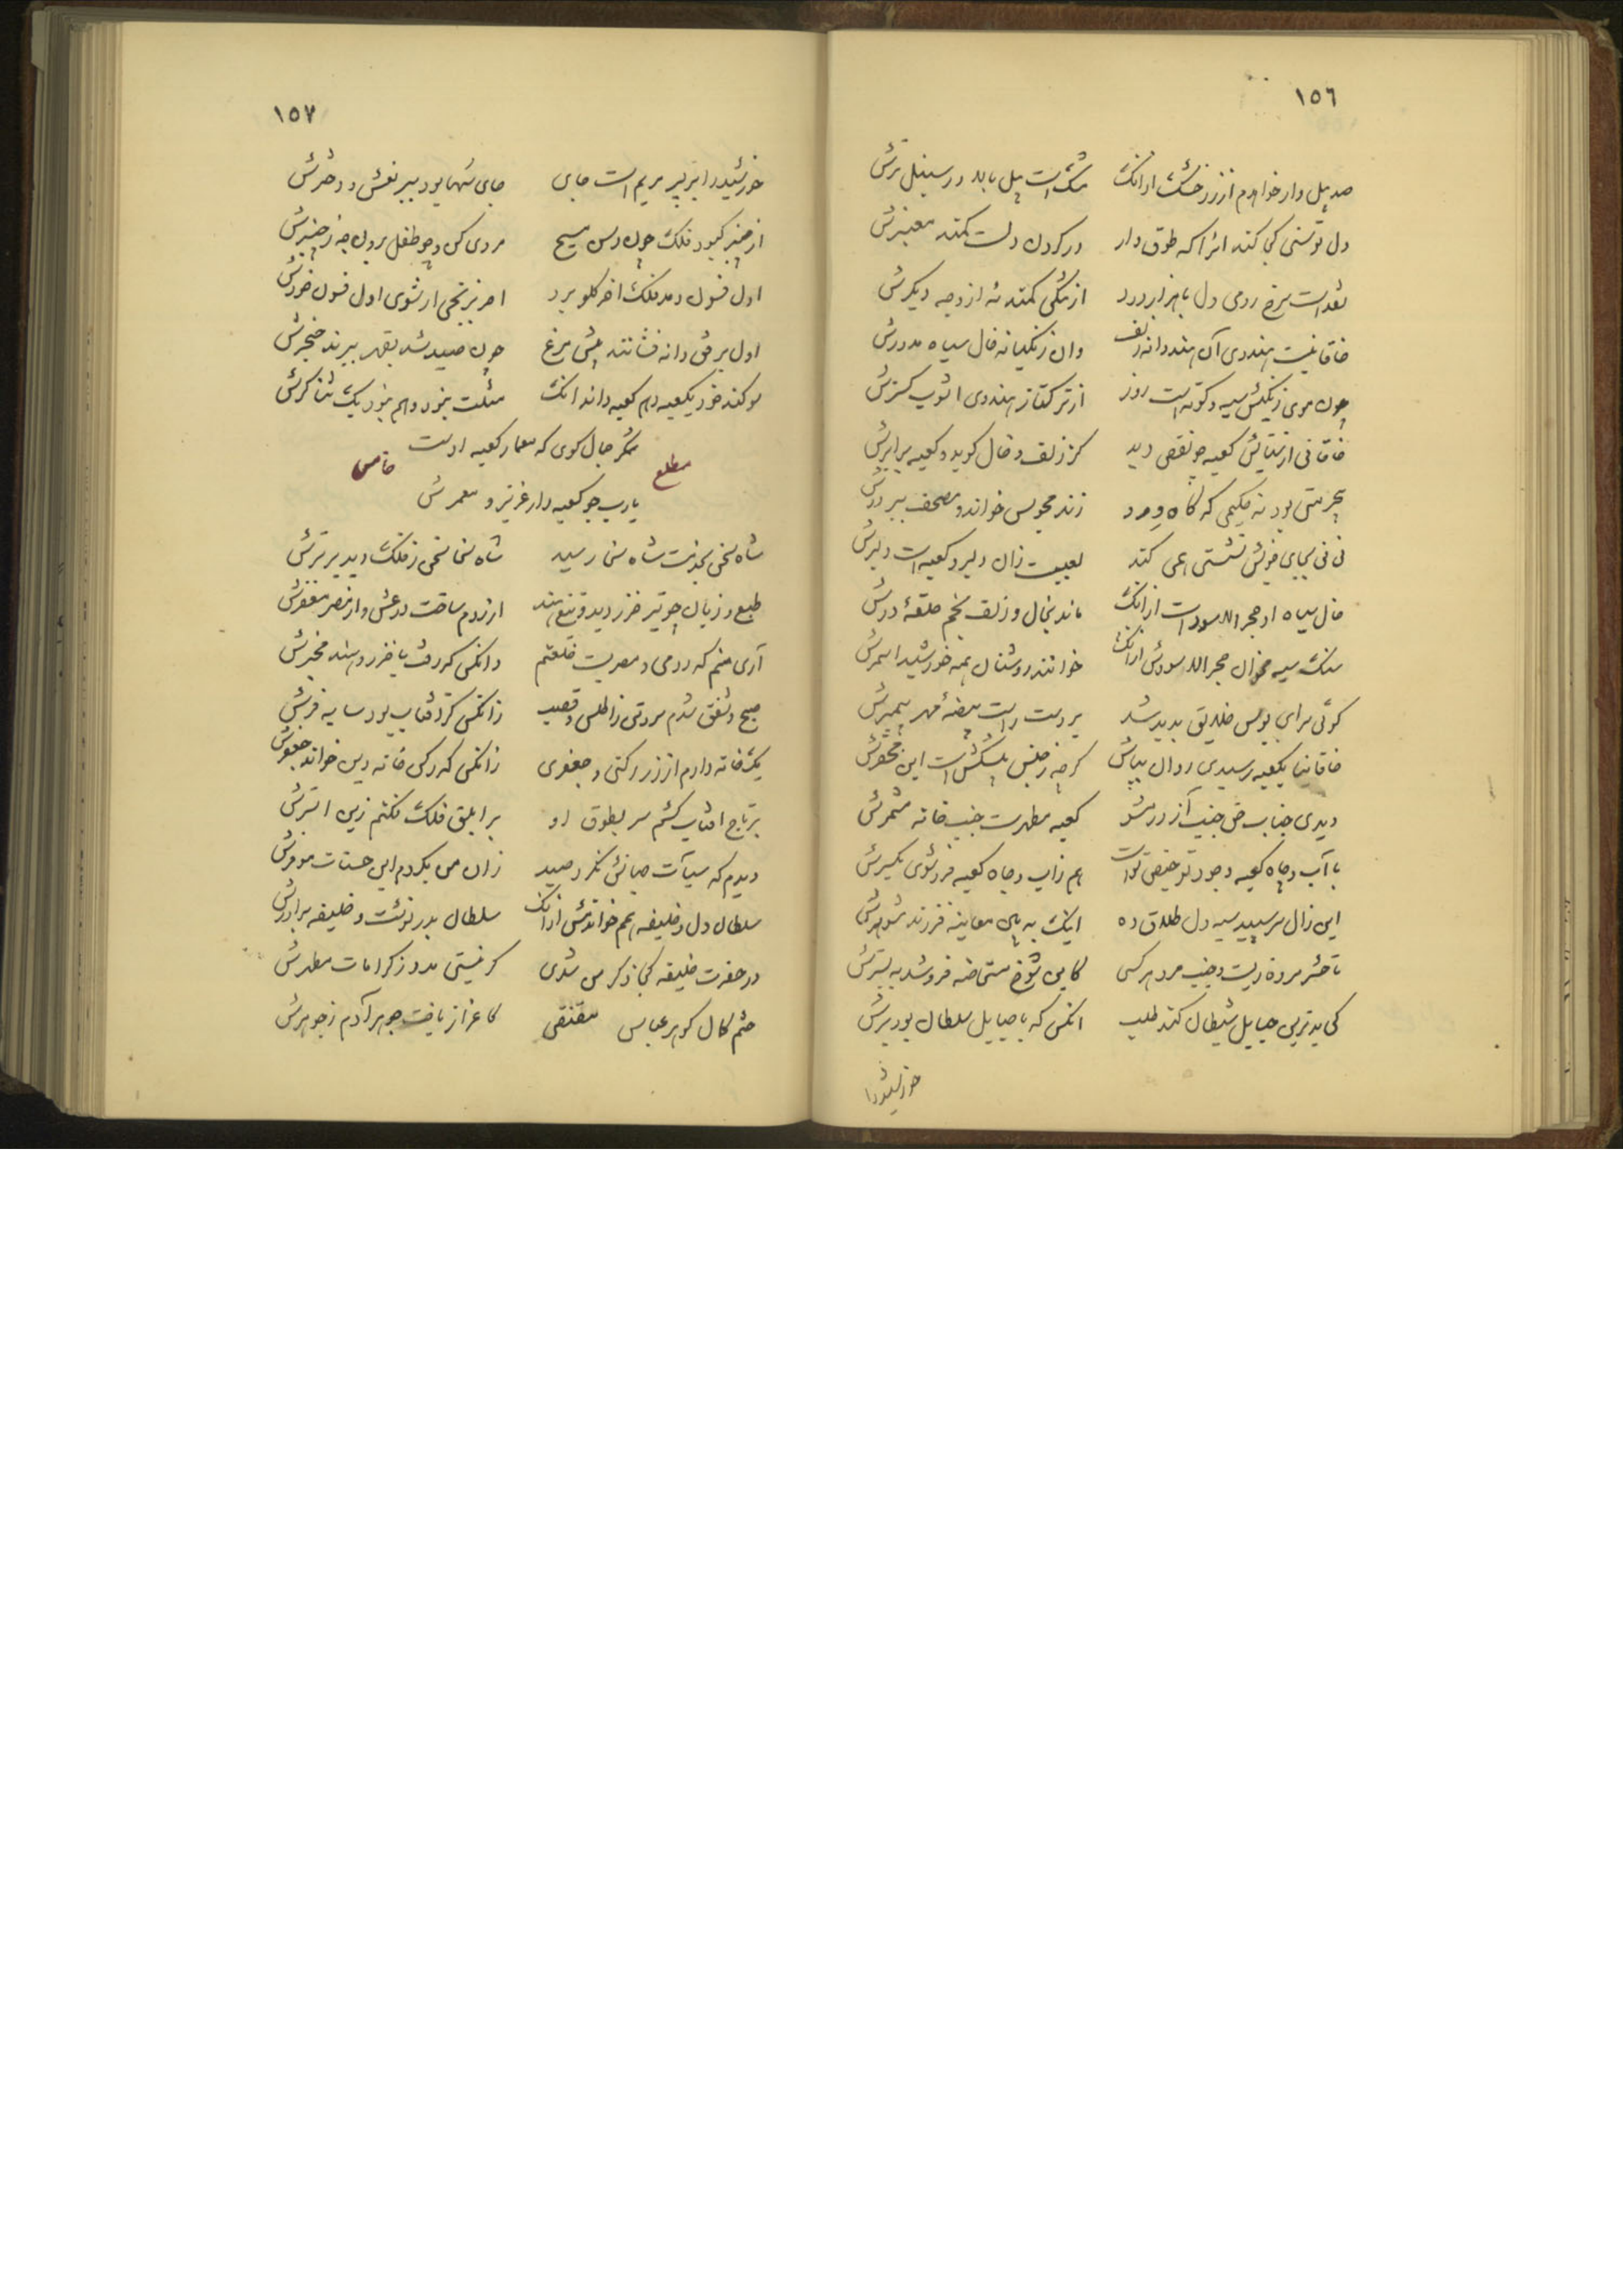 ١٥٦
صد پیل وار خواهدم از زر خشک ازانک مشک است پیل بالا در سنبل ترش
دل توسنی کجا کند انرا که طوق وار در کردن دلست کمند معنبرش
نقد است سرخ رویی دل با هزار درد از تنکی کمند نه از وجه دیکرش
خاقانیست هندوی آن هندوانه زلف وان زنکیانه خال سیاه مدورش
چون موی زنکیش سیه و کوته است روز از ترکتاز هندوی اشوب کسترش
خاقانی از ستایش کعبه چه نقص دید کز زلف و خال کوید و کعبه برابرش
بیحرمتی بود نه حکیمی که کاه ورد زند مجوس خواند و مصحف ببر درش
نی نی بجای خویش نشستی همی کند نعتیست زان دلبر و کعبه است دلبرش
خال سیاه او حجر الاسود است ازانک ماند بخال و زلف بخم حلقهٔ درش
سنک سیه مخوان حجر الاسودش ازانک خوانند روشنان همه خورشید اسمرش
کوئی برای بوس خلایق پدید شد بر دست راست بیضهٔ مهر پیمبرش
خاقانیا بکعبه رسیدی روان بپاش کرچه ز جنس پیشکش است این محقرش
دیدی جناب حق جنب آز در مشو کعبه مطهرست جنب خانه مشمرش
با آب و جاه کعبه وجود تو حیض تو است هم زاب و چاه کعبه فرو شوی یکسرش
این زال سر سپید سیه دل طلاق ده اینک ببین معاینه فرزند شوهرش
تا حشر مرده زیست و جنب مرد هر کسی کاین شوخ مستحاضه فرو شد ببسترش
کی بدترین حبایل شیطان کند طلب انکس که با حبایل سلطان بود برش
خورشید را
١٥٧
خورشید را بر پسر مریم است جای جای سها بود ببر نعش و دخترش
از چنبر کبود فلک چون رسن مپیچ مردی کن و چو طفل برون جه ز چنبرش
اول فسون دمد فلک اخر کلو برد اخر برنجی ار شنوی اول فسون خورش
اول برفق دانه فشانند پیش مرغ چون صید شد بقهر ببرند حنجرش
سوکند خورد بکعبه و هم کعبه داند انک مثلت نبود و هم نبود یک ثنا کرش
شکر جمال کوی که معمار کعبه اوست
یارب چو کعبه دار عزیز و معمرش
مطلع خامس
شاه سخن بخدمت شاه سخا رسید شاه سخا سخن ز فلک دید برترش
طبع و زبان چو تیر خزر دید و تیغ هند از روم ساخت درعش و از مصر مغفرش
آری منم که رومی و مصریست خلعتم وانکس که رفت تا خزر و هند مخبرش
صبح و شفق شدم سر و تن ز اطلس و قصب زانکس کز افتاب بود سایه فرش
یک خانه دارم از زر رکنی و جعفری زانکس که رکن خانه دین خواند جعفرش
بر تاج افتاب کشم سر بطوق او بر ابلق فلک فکنم زین استرش
دیدم که سیآت جهانش نکرد صید زان من بکردم این حسنات موفرش
سلطان دل و خلیفه همم خوانمش ازانک سلطان پدر نوشت و خلیفه برادرش
در حضرت خلیفه کجا ذکر من شدی کر نیستی مدد ز کرامات مظهرش
ختم کمال کوهر عباس مقتفی کاعزاز یافت جوهر آدم ز جوهرش